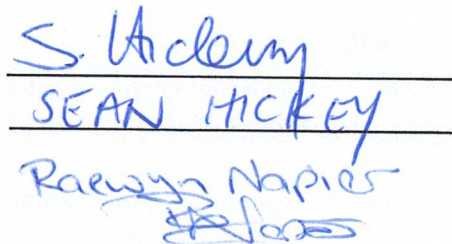 S. Hickey
SEAN HICKEY
Raewyn Napier